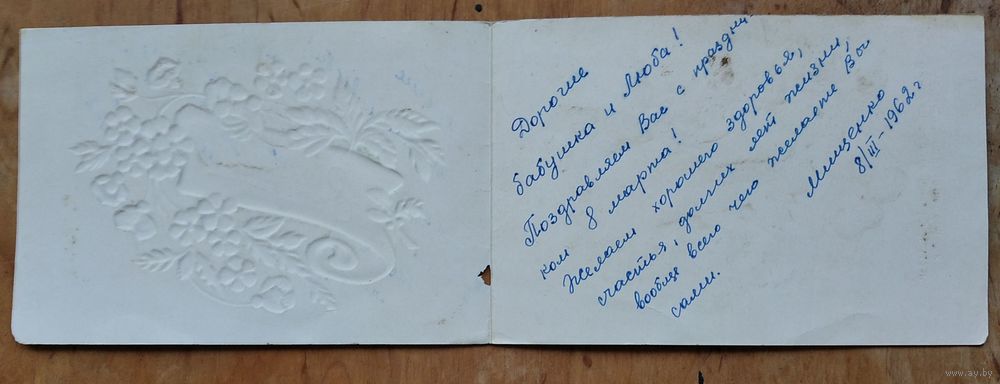 Дорогие
бабушка и Люба!
Поздравляем Вас с праздни-
ком 8 марта!
Желаем хорошего здоровья,
счастья, долгих лет жизни,
вообще всего чего желаете Вы
сами.
Мищенко
8/III-1962 г
www.ay.by